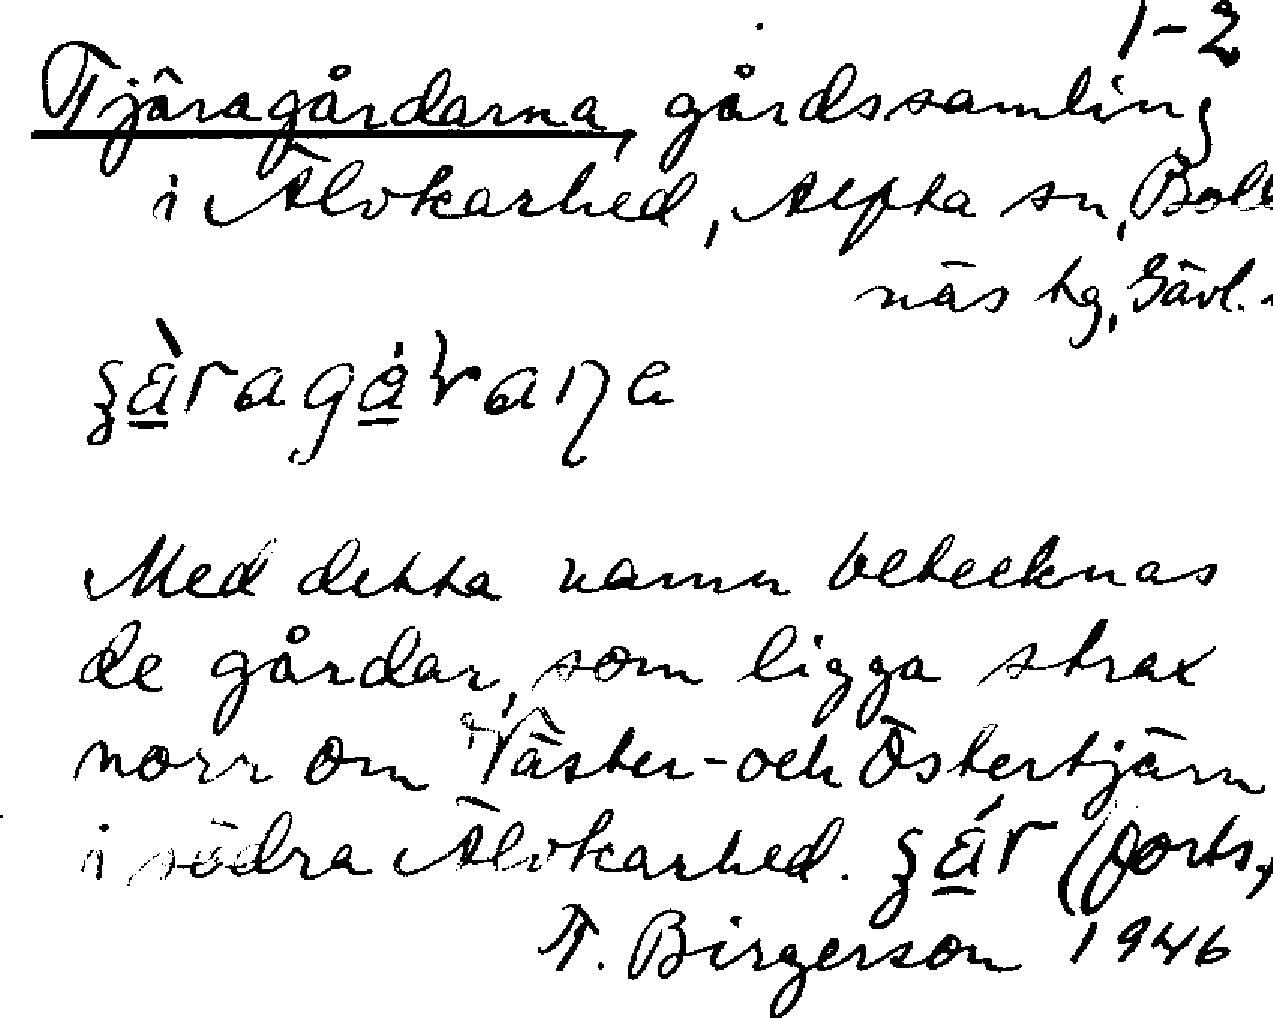 1-2
Tjäragårdarna, gårdssamling
i Älvkarhed, Alfta sn, Boll
näs tg, Gävl.
Med detta namn betecknas
de gårdar, som ligga strax
norr om Väster- och Östertjärn
i södra Älvkarhed. (forts.)
T. Birgerson 1946